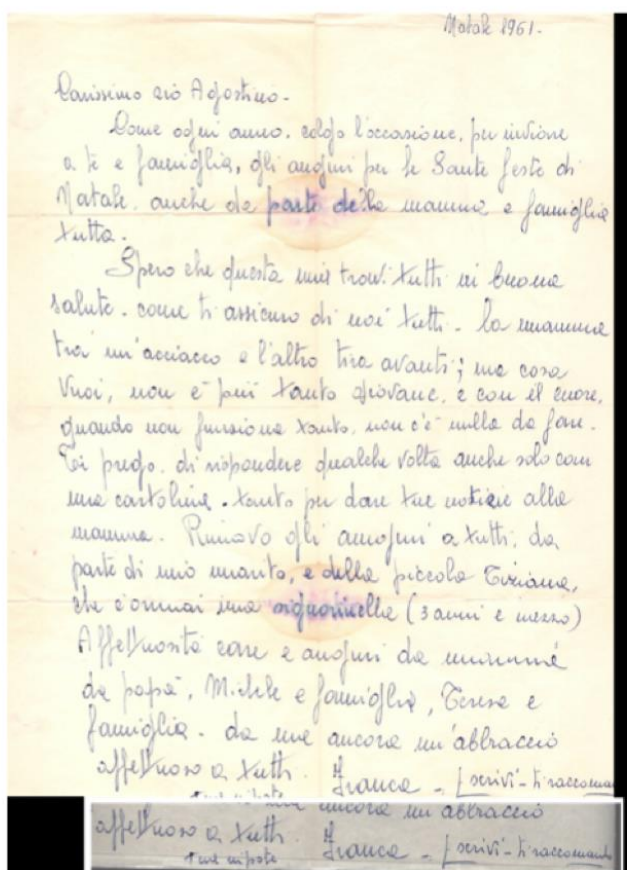 Natale 1961-
Carissimo zio Agostino-
Come ogni anno, colgo l'occasione, per inviare
a te e famiglia, gli auguri per le Sante feste di
Natale. anche da parte della mamma e famiglia
tutta.
Spero che questa mia trovi tutti in buona
salute. come ti assicuro di noi tutti. la mamma
tra un'acciacco e l'altro tira avanti; ma cosa
vuoi, non è più tanto giovane, e con il cuore,
quando non funziona tanto, non c'è nulla da fare.
Ti prego, di rispondere qualche volta anche solo con
una cartolina. tanto per dare tue notizie alla
mamma. Rinnovo gli auguri a tutti, da
parte di mio marito, e della piccola Tiziana,
che è ormai una signorinella (3 anni e mezzo)
Affettuosità care e auguri da mammá
da papà, Michele e famiglia, Teresa e
famiglia. da me ancora un'abbraccio
affettuoso a tutti. Franca - scrivi - ti raccomando
tua nipote
ancora un'abbraccio
affettuoso a tutti. Franca - scrivi - ti raccomando
tua nipote